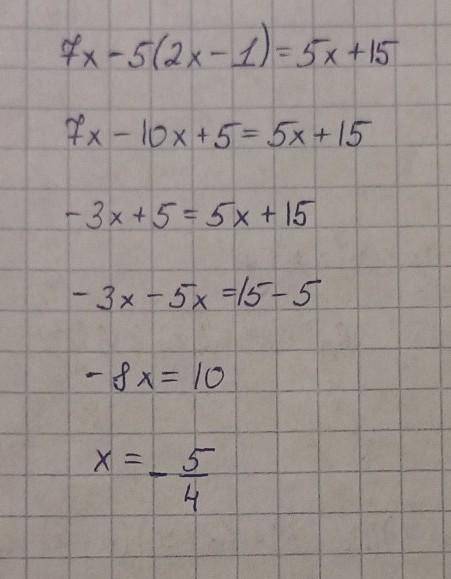 7x - 5(2x - 1) = 5x + 15
7x - 10x + 5 = 5x + 15
- 3x + 5 = 5x + 15
- 3x - 5x = 15 - 5
- 8x = 10
x = - 5/4